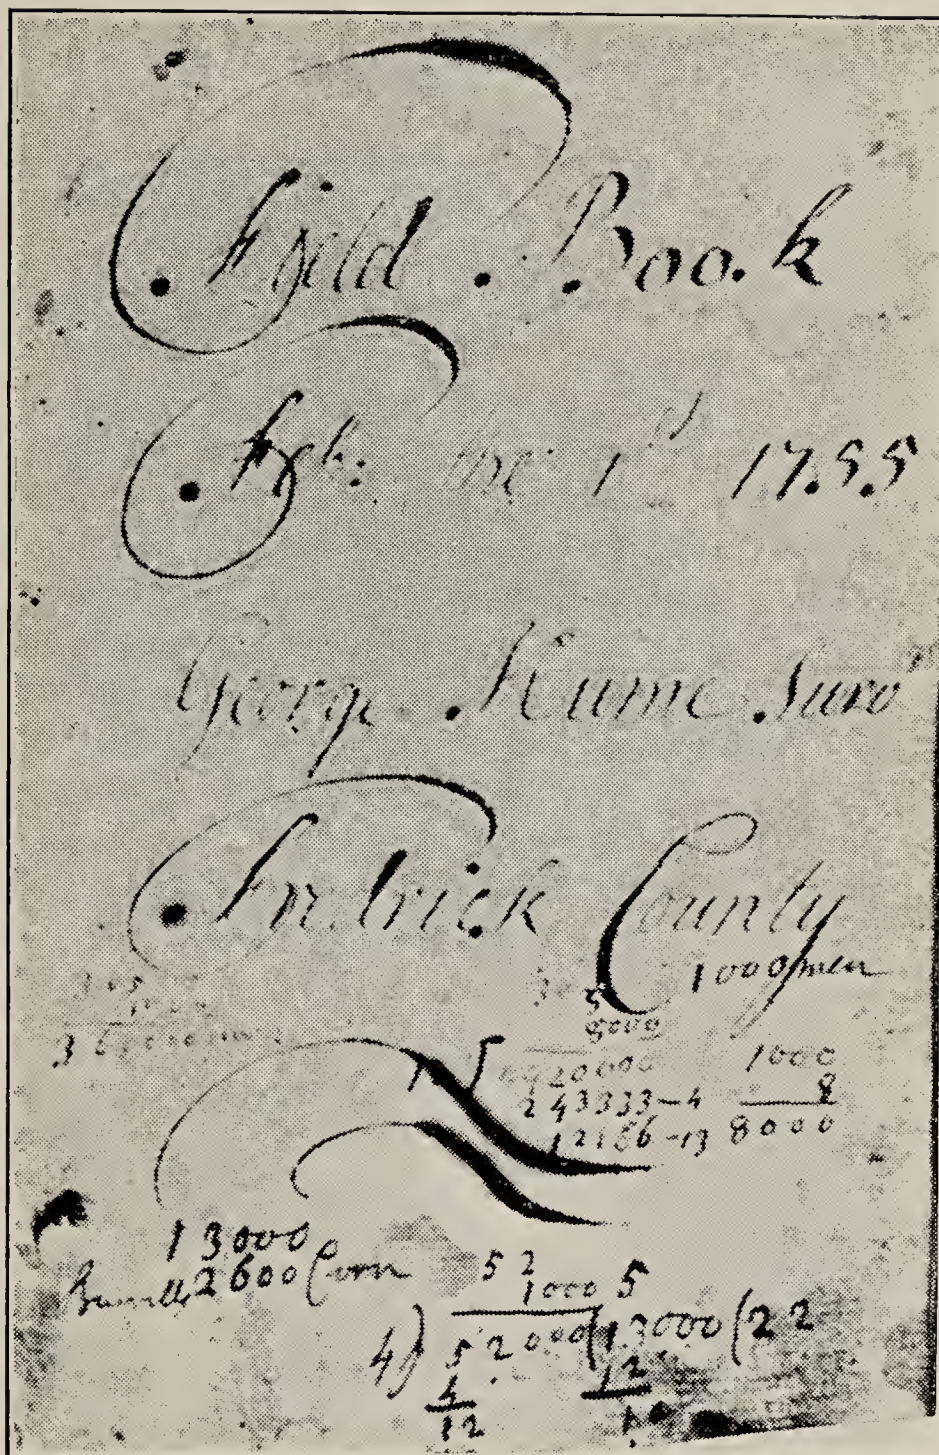 Field Book
Feb: the 1st 1755
George Hume Survr
Fredrick County
1000 men
365
5000 1000
8
243333-4
12166-13 8000
13000
2600 Corn
52
1000 5
4) 52000 (13000 (22
4 12
12 1